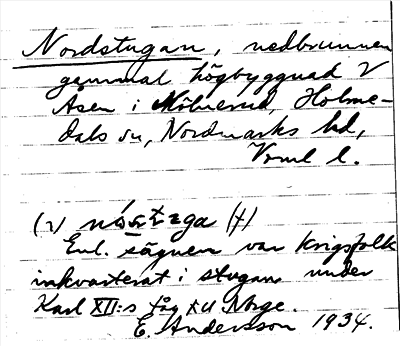 Nordstugan, nedbrunnen
gammal högbyggnad V
Åsen i Holme-
dals sn, Nordmarks hd,
Vrml l.
(2)
Enl. sägnen var krigsfolk
inkvarterat i stugan under
Karl XII:s tåg till Norge.
E. Andersson 1934.